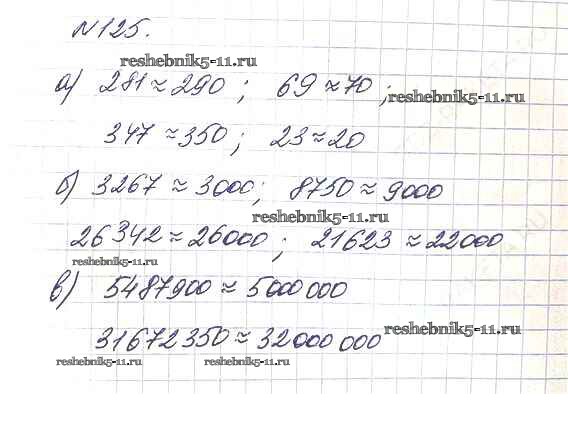 №125.
reshebnik5-11.ru
а) 281≈290; 69≈70;
reshebnik5-11.ru
347≈350; 23≈20
б) 3267≈3000; 8750≈9000
reshebnik5-11.ru
26342≈26000; 21623≈22000
reshebnik5-11.ru
в) 5487900≈5000000
reshebnik5-11.ru
31672350≈32000000
reshebnik5-11.ru reshebnik5-11.ru